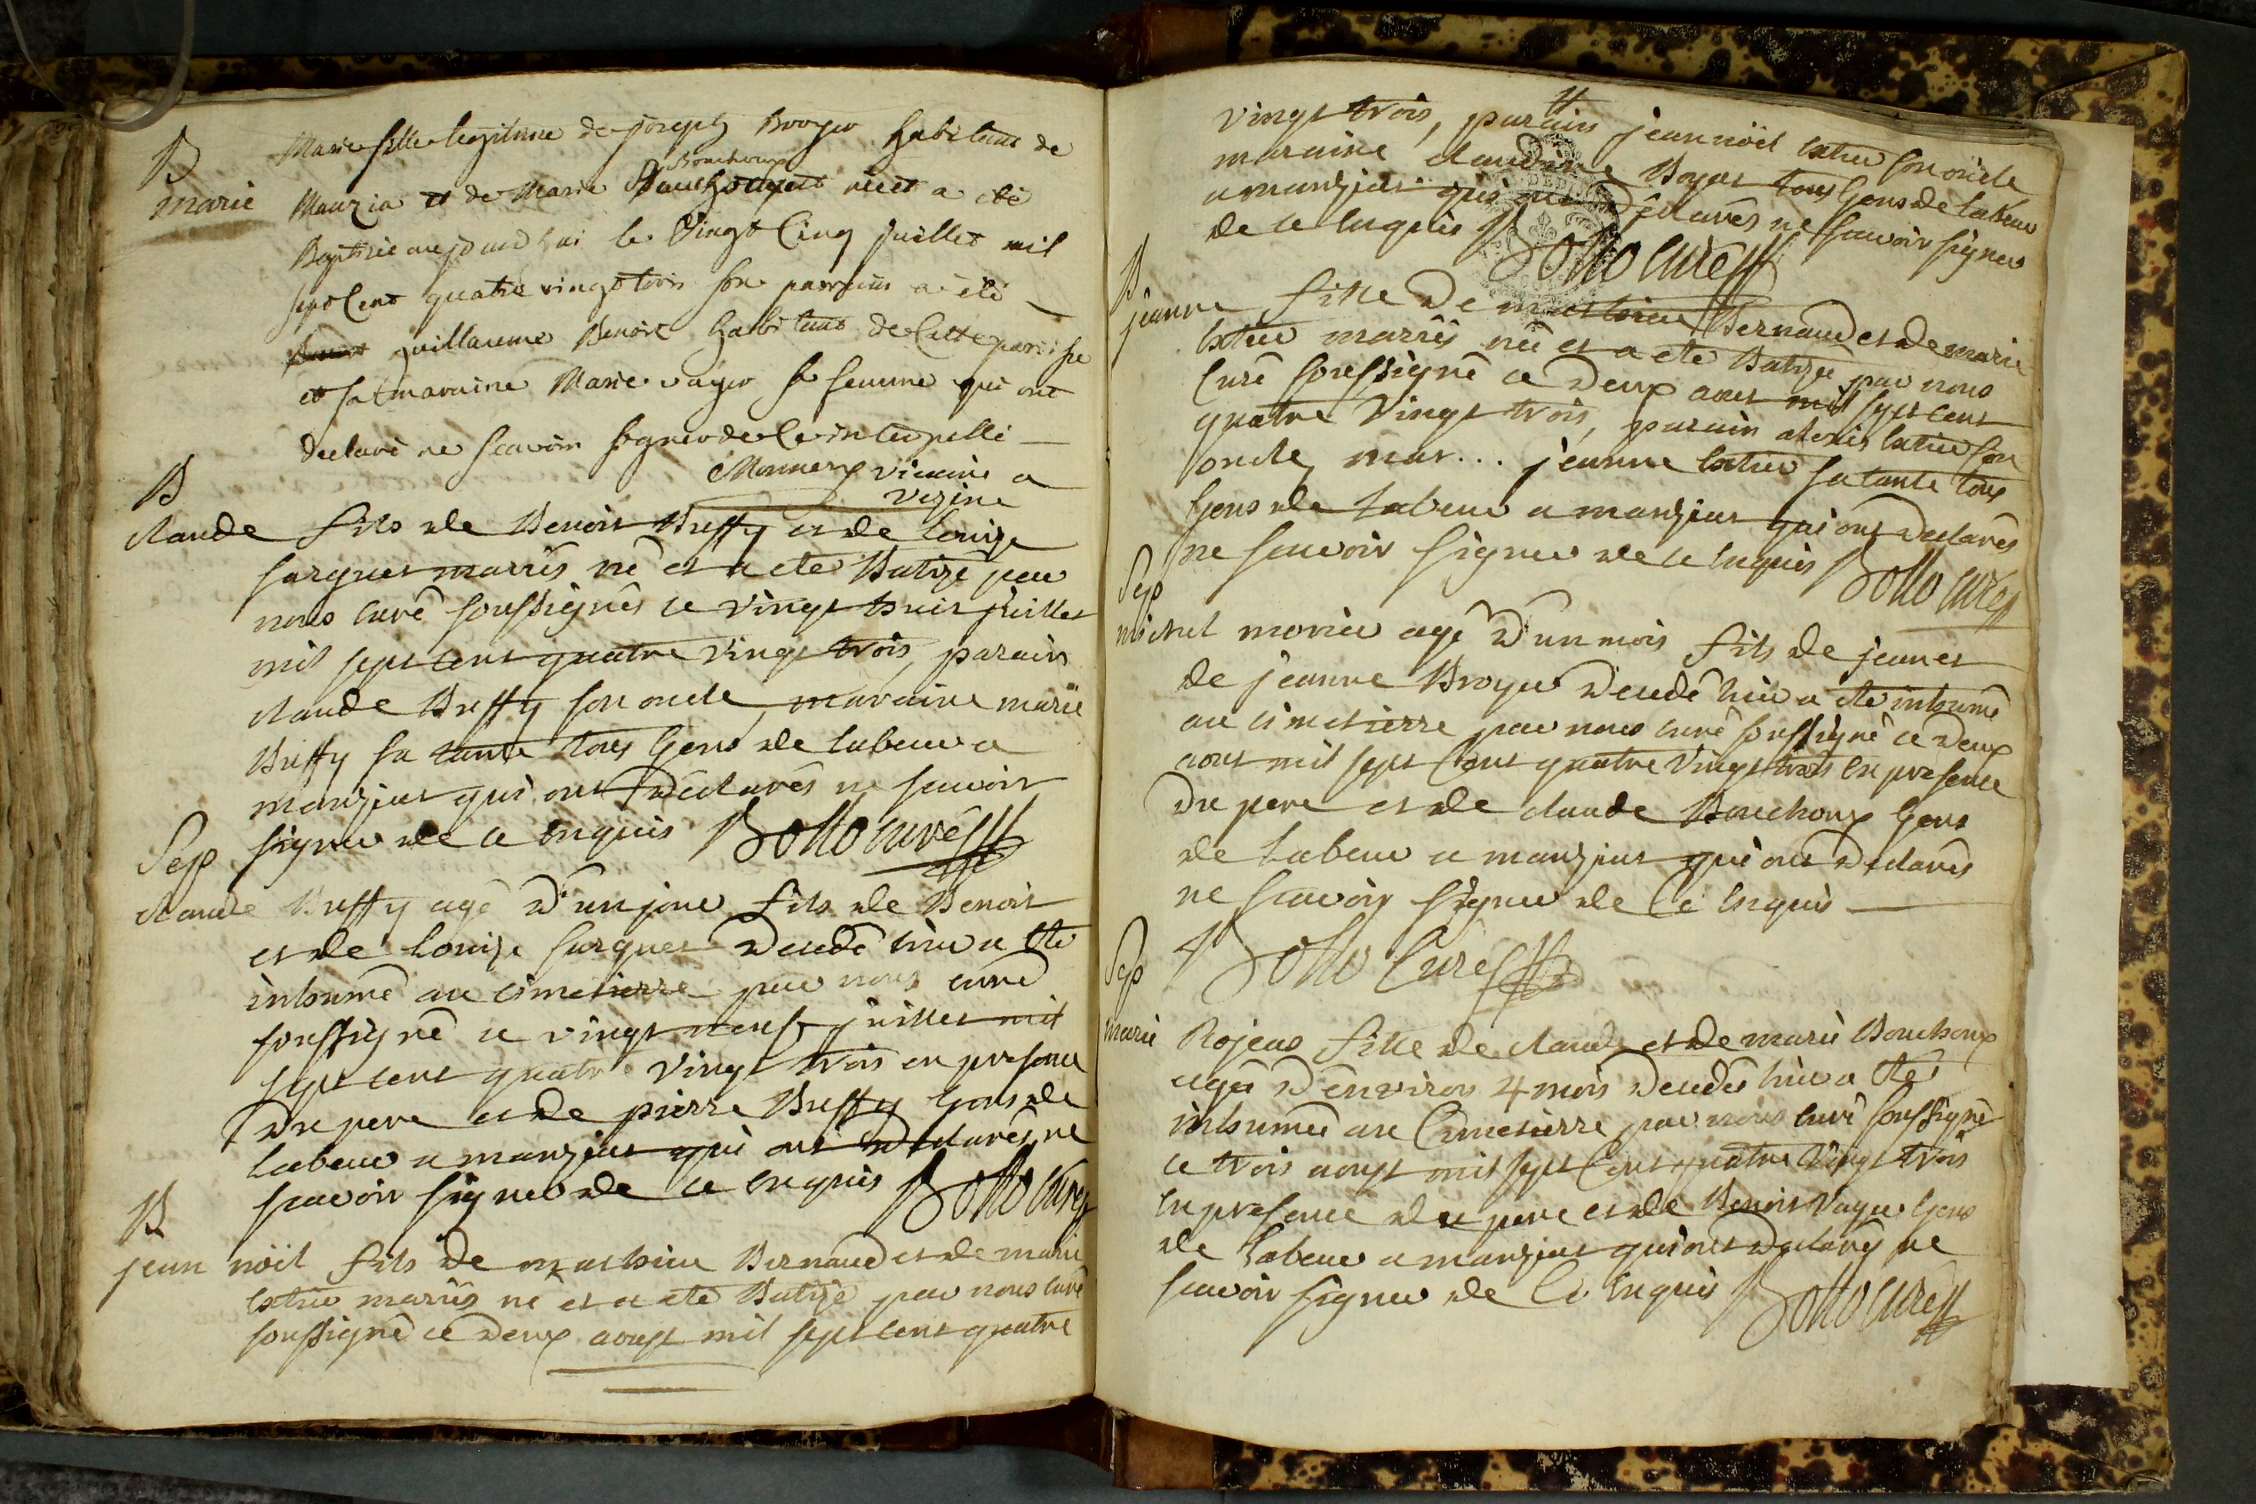 B
marie
Marie fille legitime de joseph Broyer habitant de
Bouchoux
Manzia et de Marie née a été
Baptisée aujourd'hui le Vingt Cinq juillet mil
sept Cent quatre vingt trois son parrain a été
guillaume Benoit habitant de Cette paroisse
et sa marraine Marie vayer sa femme qui ont
declaré ne scavoir signer de Ce interpellé
Monnery vicaire a
vezine
B
claude fils de Benoit Buffy et de louize
surgues mariés né et a eté Batizé par
nous curé soussignés ce vingt huit juillet
mil sept cent quatre vingt trois, parain
claude Buffy son oncle, maraine marie
Buffy sa tante tous Gens de labeur a
manziat qui ont déclarés ne scavoir
signer de ce enquis Botto curé
Sep
claude Buffy agé d'un jour fils de Benoit
et de louize surgues décédé hier a eté
inhumé au cimetierre par nous curé
soussigné ce vingt neuf juillet mil
sept cent quatre vingt trois en presence
du pere et de pierre Buffy Gens de
labeur a manziat qui ont déclarés ne
scavoir signer de ce enquis Botto curé
B
jean noël fils de mathieu Bernaud et de marie
catier mariés né et a eté Batizé par nous curé
soussigné ce deux aoust mil sept cent quatre
vingt trois, parain jean noël catier son oncle
maraine claudine Boyat tous Gens de labeur
a manziat qui ont déclarés ne scavoir signer
de ce enquis Botto curé
B
jeanne fille de mathieu Bernaud et de marie
catier mariés née et a eté Batizée par nous
Curé soussigné ce deux aout mil sept cent
quatre vingt trois, parain alexis catier son
oncle, mar... jeanne catier sa tante tous
Gens de labeur a manziat qui ont déclarés
ne scavoir signer de ce enquis Botto curé
Sep
michel morier agé d'un mois fils de jean et
de jeanne Broyer décédé hier a eté inhumé
au cimetierre par nous curé soussigné ce deux
aout mil sept Cent quatre vingt trois en presence
du pere et de claude Bouchoux Gens
de labeur a manziat qui ont déclarés
ne scavoir signer de Ce enquis
Botto Curé
Sep
marie Rojeas fille de claude et de marie Bouchoux
agée d'environ 4 mois décédée hier a eté
inhumée au Cimetierre par nous curé soussigné
ce trois aoust mil sept Cent quatre vingt trois
en presence du pere et de Benoit Vayer Gens
de labeur a manziat qui ont déclarés ne
scavoir signer de Ce enquis Botto curé